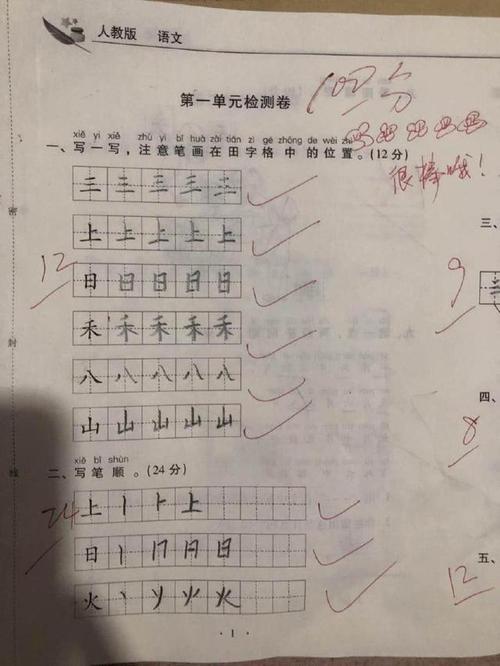 人教版 语文
第一单元检测卷 100分
xiě yi xiě zhù yì bǐ huà zài tián zì gé zhōng de wèi zhi
一、写一写，注意笔画在田字格中的位置。(12分)
很棒哦！
三 三 三 三 三
上 上 上 上 上
12
日 日 日 日 日
禾 禾 禾 禾 禾
八 八 八 八 八
山 山 山 山 山
xiě bǐ shùn
二、写笔顺。(24分)
24
上 丨 卜 上
日 丨 冂 日 日
火 丶 丷 火 火
· 1 ·
三、
9
四、
8
五、
12
密
封
线